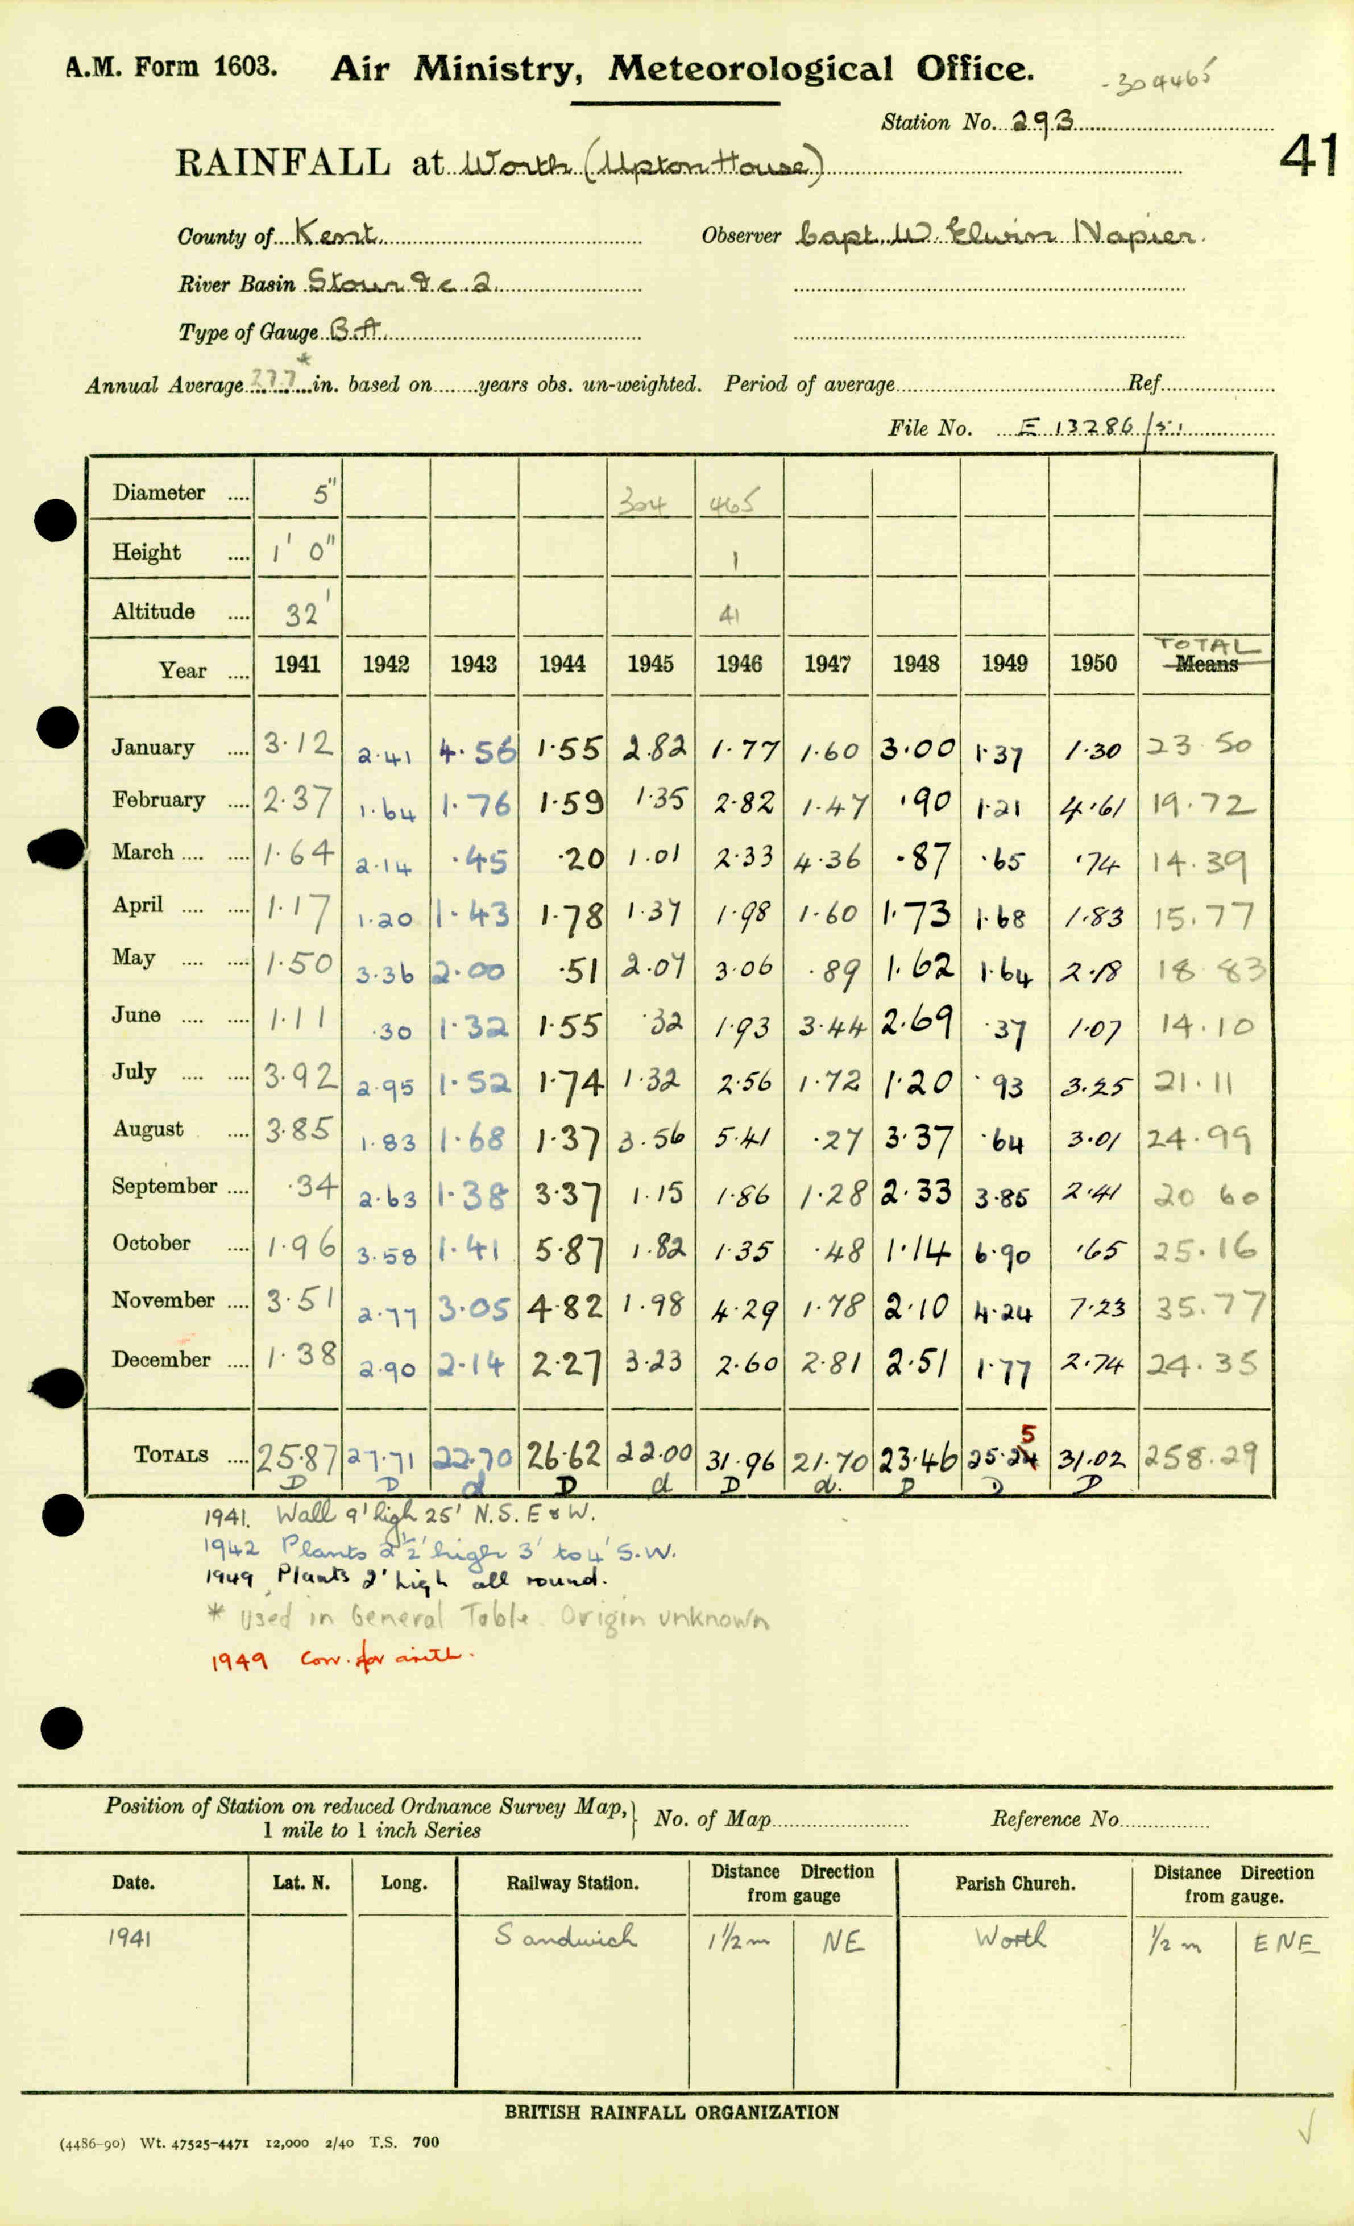 A.M. Form 1603. Air Ministry, Meteorological Office. -304465
Station No. 293
41
RAINFALL at Worth (Upton House)
County of Kent Observer Capt. W. Elwin Napier.
River Basin Stour &c. 2
Type of Gauge B.A.
Annual Average 27.7* in. based on years obs. un-weighted. Period of average Ref.
File No. E 13286/51
Diameter .... 5" 304 465
Height .... 1' 0" 1
Altitude .... 32' 41
Year .... 1941 1942 1943 1944 1945 1946 1947 1948 1949 1950 TOTAL Means
January .... 3.12 2.41 4.56 1.55 2.82 1.77 1.60 3.00 1.37 1.30 23.50
February .... 2.37 1.64 1.76 1.59 1.35 2.82 1.47 .90 1.21 4.61 19.72
March .... .... 1.64 2.14 .45 .20 1.01 2.33 4.36 .87 .65 .74 14.39
April .... .... 1.17 1.20 1.43 1.78 1.37 1.98 1.60 1.73 1.68 1.83 15.77
May .... .... 1.50 3.36 2.00 .51 2.07 3.06 .89 1.62 1.64 2.18 18.83
June .... .... 1.11 .30 1.32 1.55 .32 1.93 3.44 2.69 .37 1.07 14.10
July .... .... 3.92 2.95 1.52 1.74 1.32 2.56 1.72 1.20 .93 3.25 21.11
August .... 3.85 1.83 1.68 1.37 3.56 5.41 .27 3.37 .64 3.01 24.99
September .... .34 2.63 1.38 3.37 1.15 1.86 1.28 2.33 3.85 2.41 20.60
October .... 1.96 3.58 1.41 5.87 1.82 1.35 .48 1.14 6.90 .65 25.16
November .... 3.51 2.77 3.05 4.82 1.98 4.29 1.78 2.10 4.24 7.23 35.77
December .... 1.38 2.90 2.14 2.27 3.23 2.60 2.81 2.51 1.77 2.74 24.35
TOTALS .... 25.87 27.71 22.70 26.62 22.00 31.96 21.70 23.46 25.24 5 31.02 258.29
D D d D d D d. D D D
1941. Wall 9' high 25' N.S. E & W.
1942 Plants 2½' high 3' to 4' S.W.
1949 Plants 2' high all round.
* Used in General Table. Origin unknown
1949 Corr. for arith.
Position of Station on reduced Ordnance Survey Map, 1 mile to 1 inch Series } No. of Map Reference No.
Date. Lat. N. Long. Railway Station. Distance Direction from gauge Parish Church. Distance Direction from gauge.
1941 Sandwich 1½ m NE Worth ½ m ENE
BRITISH RAINFALL ORGANIZATION
(4486-90) Wt. 47525-4471 12,000 2/40 T.S. 700